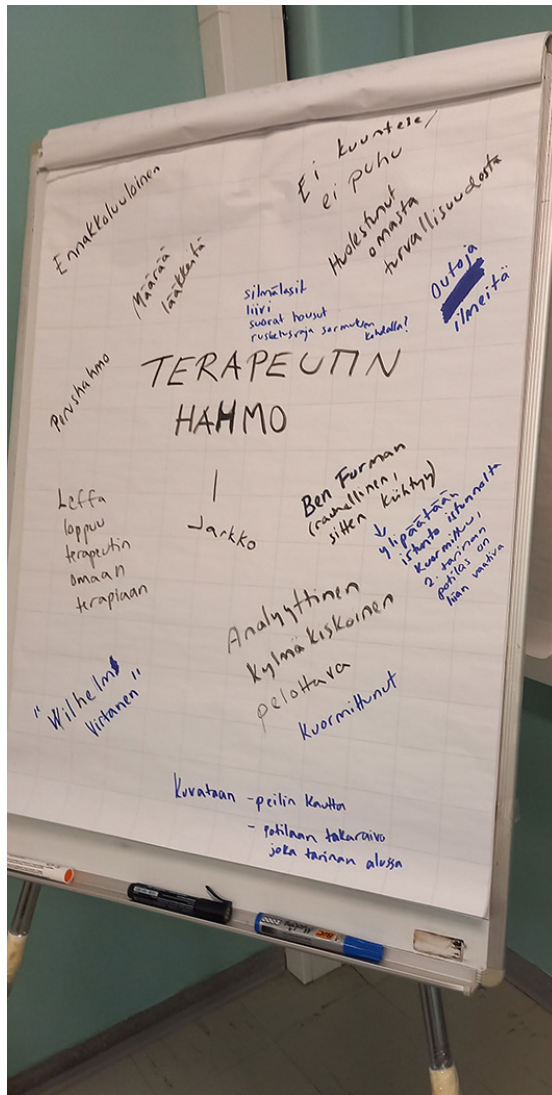 Ennakkoluuloinen
Määrää
lääkkeitä
Ei kuuntele,
ei puhu
Huolestunut
omasta
turvallisuudesta
Outoja
ilmeitä
silmälasit
liivi
suorat housut
rusketusraja sormuksen
kohdalla?
TERAPEUTIN
HAHMO
Perushahmo
Jarkko
Leffa
loppuu
terapeutin
omaan
terapiaan
Ben Furman
(rauhallinen,
sitten kiihtyy)
ylipäätään
istunto istunnolta
kuormittuu,
2. tarinan
potilas on
liian vaativa
Analyyttinen
Kylmäkiskoinen
pelottava
kuormittunut
"Wilhelm
Virtanen"
Kuvataan - peilin kautta
- potilaan takaraivo
joka tarinan alussa